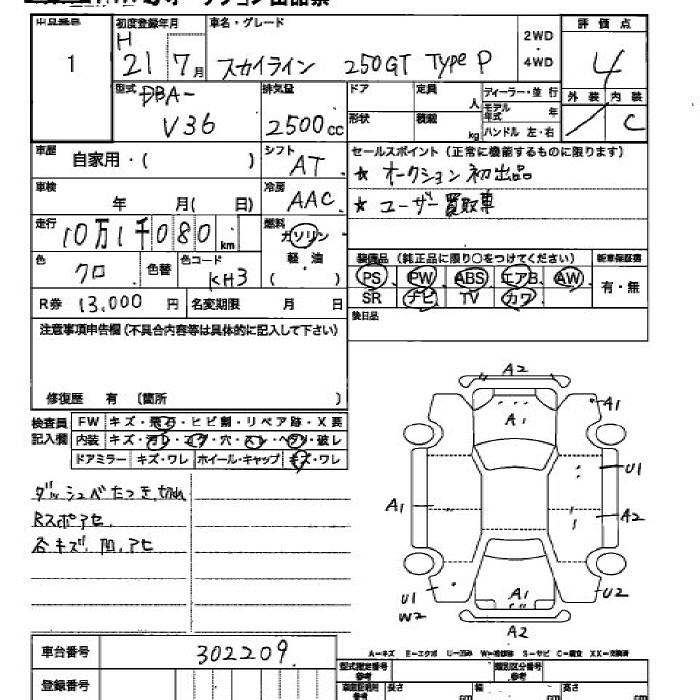 初度登録年月
車名・グレード
評価点
1
H 21 7月
スカイライン 250GT TypeP
2WD・4WD
4
型式 DBA-V36
排気量 2500cc
ドア 定員 人
形状 積載 kg
ディーラー・並行
モデル年式 年
ハンドル 左・右
外装 内装
C
車歴 自家用・( )
シフト AT
セールスポイント (正常に機能するものに限ります)
★ オークション初出品
★ ユーザー買取車
車検 年 月( 日)
冷房 AAC
走行 10万1千080km
燃料 ガソリン 軽・油 ( )
色 クロ 色替
色コード KH3
装備品 (純正品に限り○をつけてください) 新車保証書
PS PW ABS エアB AW 有・無
SR ナビ TV カワ
後日品
R券 13,000円 名変期限 月 日
注意事項申告欄 (不具合内容等は具体的に記入して下さい)
修復歴 有 〔箇所 〕
検査員記入欄
FW キズ・飛石・ヒビ割・リペア跡・X要
内装 キズ・汚レ・コゲ・穴・スレ・ヘタリ・破レ
ドアミラー キズ・ワレ ホイール・キャップ キズ・ワレ
ダッシュベたつき、切れ
Rスポアセ
各キズ、凹、アセ
A2
A1
A1
U1
A1
A2
U1
W2
A1
U2
A2
車台番号 302209
A－キズ E－エクボ U－凹み W－補修跡 S－サビ C－腐食 XX－交換済
登録番号
型式指定番号 参考
類別区分番号 参考
長さ cm 幅 cm 高さ cm